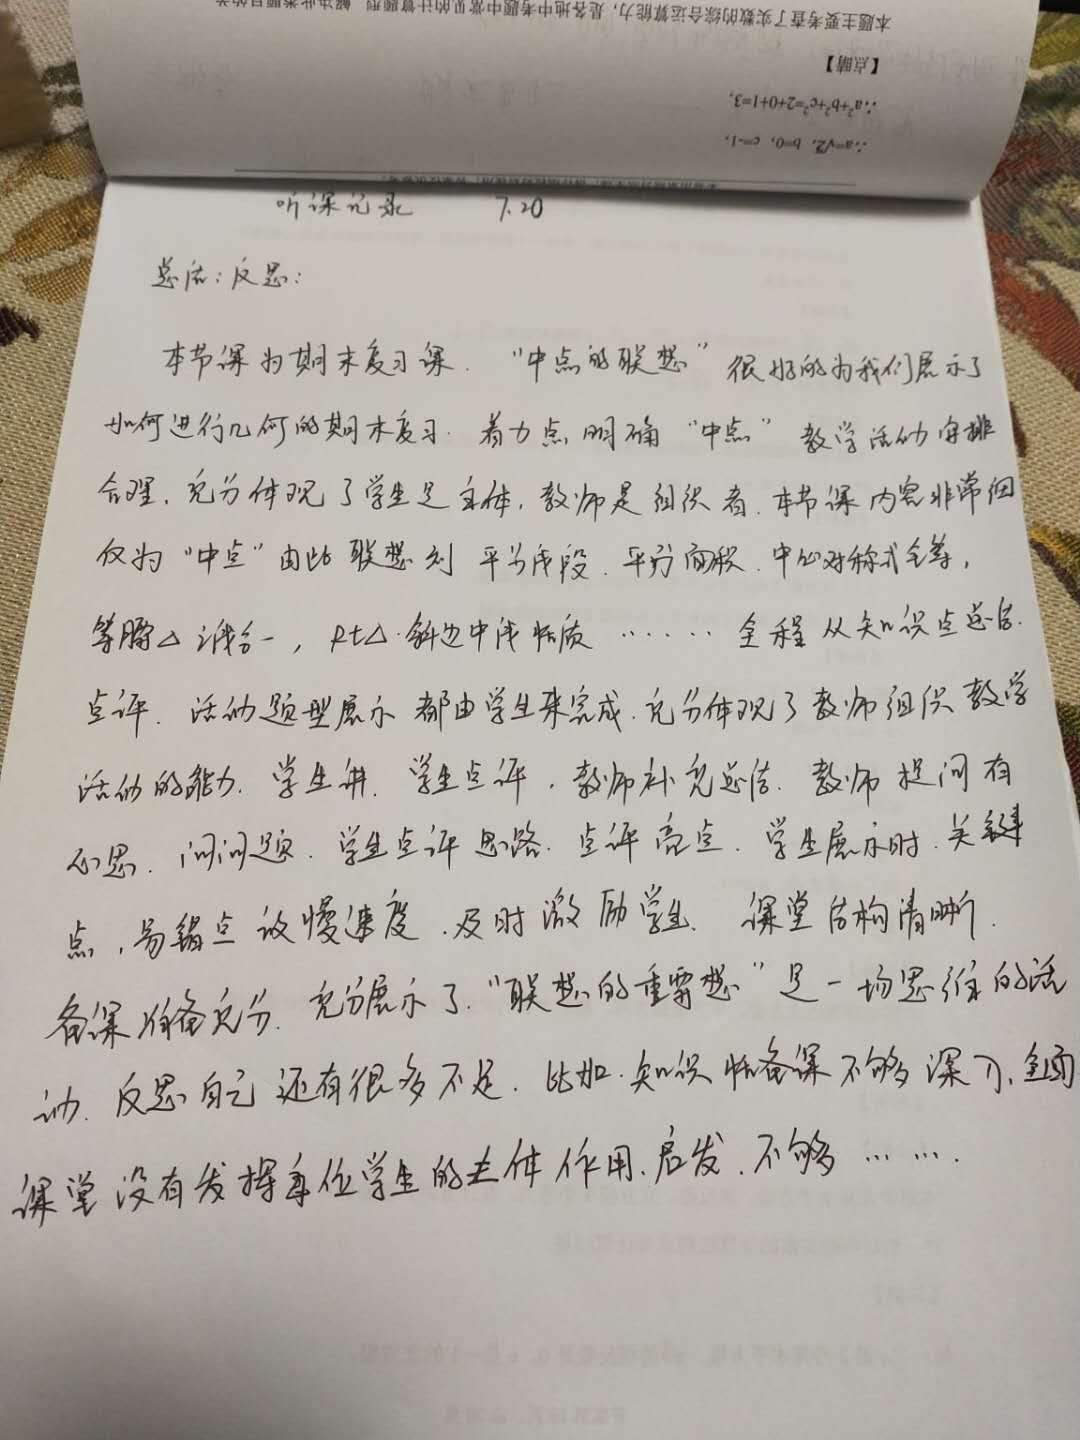 本题主要考查了实数的综合运算能力，是各地中考题中常见的计算题型.解决此类题目的关
【点睛】
∴a²+b²+c²=2+0+1=3,
∴a=√2, b=0, c=-1,
听课记录 7.20
总结：反思：
本节课为期末复习课．“中点的联想”很好的为我们展示了
如何进行几何的期末复习．着力点明确“中点”教学活动安排
合理．充分体现了学生是主体，教师是组织者．本节课内容非常细
仅为“中点”由此联想到平分线段．平分面积．中心对称式全等，
等腰△三线合一，Rt△斜边中线性质……全程从知识点总结．
点评．活动题型展示都由学生来完成．充分体现了教师组织教学
活动的能力．学生讲．学生点评，教师补充总结．教师提问有
心思．问问题．学生点评思路．点评亮点．学生展示时．关键
点，易错点放慢速度．及时激励学生．课堂结构清晰．
备课准备充分．充分展示了“联想的重要想”是一场思维的活
动．反思自己还有很多不足．比如．知识性备课不够深入．全面
课堂没有发挥每位学生的主体作用．启发．不够……．